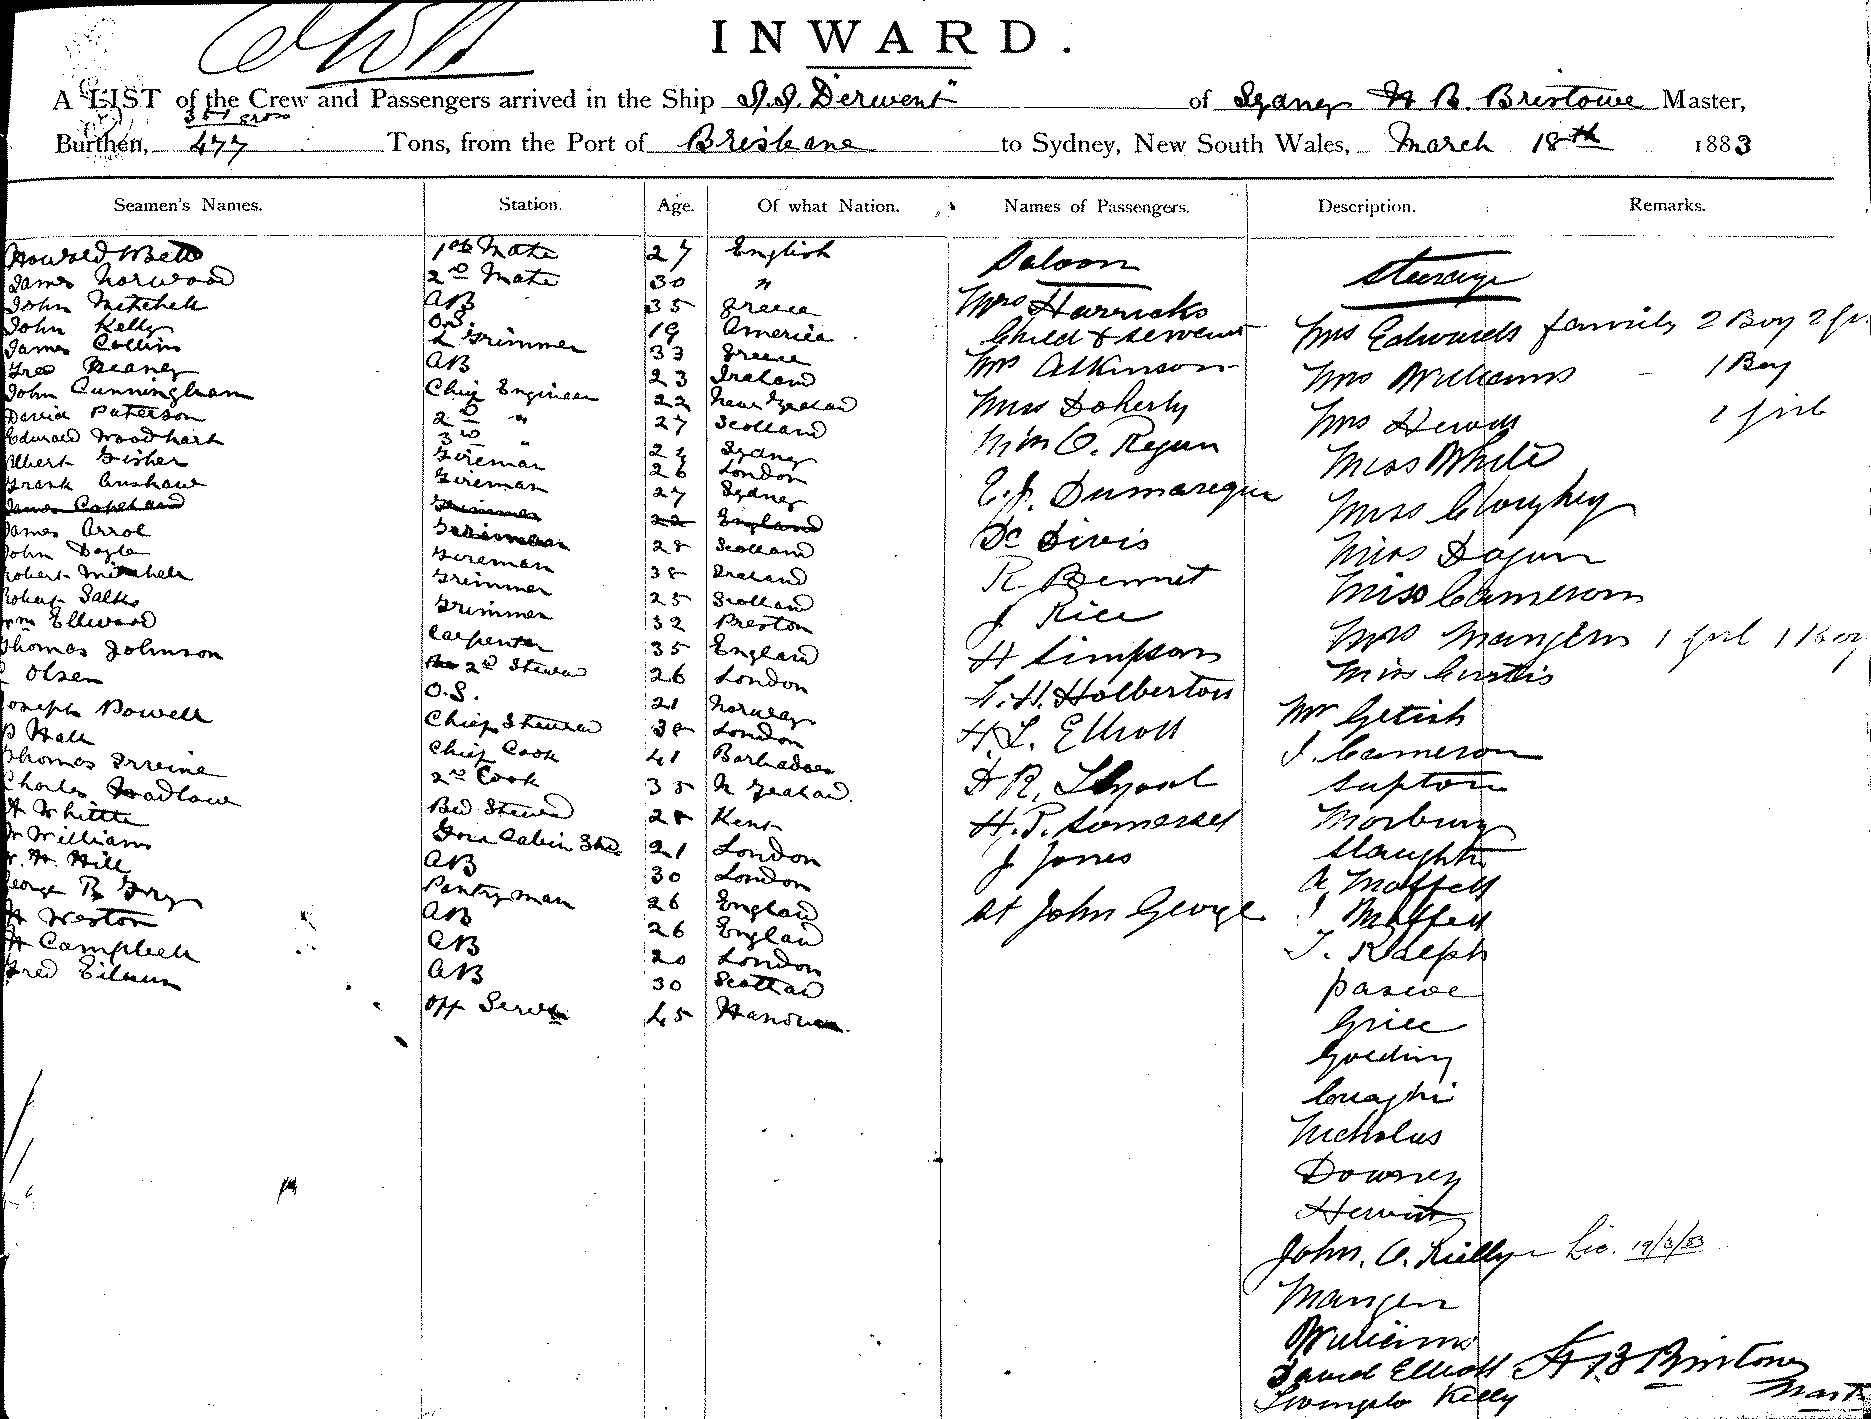 INWARD.
A LIST of the Crew and Passengers arrived in the Ship S.S. "Derwent" of Sydney H B. Bristowe Master,
Burthen, 477 Tons, from the Port of Brisbane to Sydney, New South Wales, March 18th 1883
Seamen's Names. Station. Age. Of what Nation. Names of Passengers. Description. Remarks.
Saloon Steerage
1st Mate 27 English
James Norwood 2nd Mate 30 "
John Mitchell AB 35 Greece
John Kelly O.S. 19 America
James Collins Trimmer 33 Greece
AB 23 Ireland
John Cunningham Chief Engineer 22 New Zealand
David Paterson 2nd " 27 Scotland
Edward Woodhart 3rd " 24 Sydney
Albert Fisher Fireman 26 London
Frank Fireman 27 Sydney
James Copeland Trimmer 22 England
James Arrol Fireman 28 Scotland
John Doyle Fireman 38 Ireland
Robert Mitchell Trimmer 25 Scotland
Robert Trimmer 32 Preston
Wm Ellwood Carpenter 35 England
Thomas Johnson 2nd Steward 26 London
Olsen O.S. 21 Norway
Joseph Powell Chief Steward 38 London
Hall Chief Cook 41 Barbadoes
Thomas Irvine 2nd Cook 35 N Zealand.
Charles Wadlow Bed Steward 28 Kent
H Whittle Fore Cabin 21 London
W William AB 30 London
W. H. Hill Pantry man 26 England
George B AB 26 England
H Weston AB 20 London
H Campbell AB 30 Scotland
Fred 45 Hanover
Mrs Harricks
Child & servant
Mrs Atkinson
Miss Doherty
Miss O. Regan
E. J. Dumaresque
Dr Divis
R Bennet
J Rice
H Simpson
F. H. Holberton
H. L. Elliott
H R,
H. P. Somerset
J Jones
St John George
Mrs Edwards family 2 Boy 2
Mrs Williams 1 Boy
Mrs Hewitt 1 girl
Miss White
Miss Cloughey
Miss
Miss Cameron
Mrs Mangers 1 girl 1 Boy
Miss Curtis
Mr
J. Cameron
Supton
Slaughter
A. Moffett
J Moffett
T. Ralph
Pascoe
Grice
Golding
Nicholas
Downey
Hewitt
John. O. Reilly Lic. 19/3/83
Mangen
Williams
David Elliott
Kelly
H B Bristowe
Master